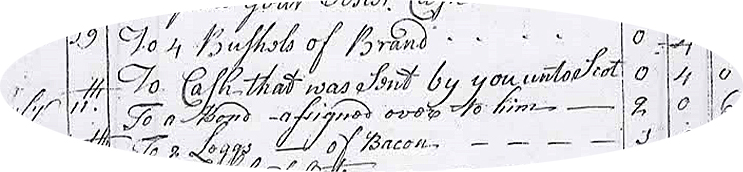 your
19 To 4 Bushels of Brand 0 4
To Cash that was Sent by you unto Scot 0 4 0
11th To a Bond assigned over to him 2 0 6
th To 2 Loggs of Bacon 3